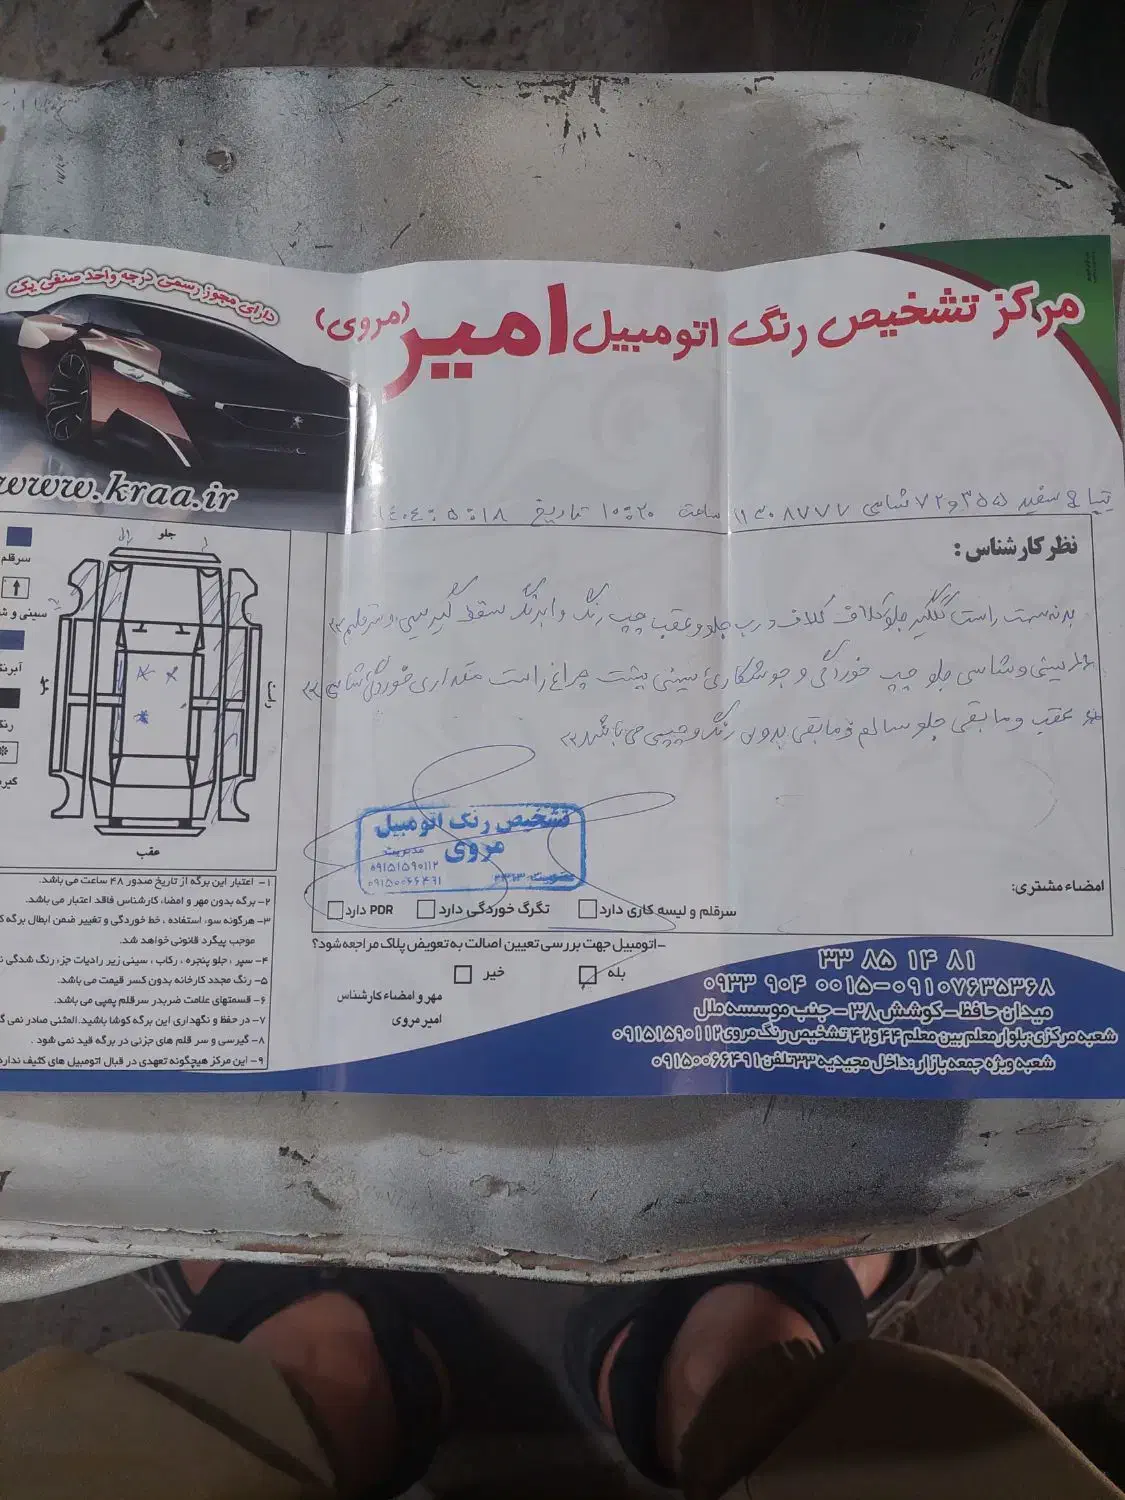 مرکز تشخیص رنگ اتومبیل امیر (مروی)
دارای مجوز رسمی درجه واحد صنفی یک
www.kraa.ir
سفید
شاسی
ساعت ۱۰:۲۰ تاریخ ۱۴۰۴:۵:۱۸
نظر کارشناس :
بدنه سمت راست گلگیر جلو کلاف درب جلو و عقب چپ رنگ و ابرنگ سقف گیرسی و سرقلم
سینی و شاسی جلو چپ خوردگی و جوشکاری سینی پشت چراغ راست مقداری خوردگی شاسی
عقب و مابقی جلو سالم و مابقی بدون رنگ و چیپسی می باشد
تشخیص رنگ اتومبیل
مروی
مدیریت
۰۹۱۵۱۵۹۰۱۱۲
۰۹۱۵۰۰۶۶۴۹۱
امضاء مشتری:
سرقلم و لیسه کاری دارد
تگرگ خوردگی دارد
PDR دارد
-اتومبیل جهت بررسی تعیین اصالت به تعویض پلاک مراجعه شود؟
بله
خیر
مهر و امضاء کارشناس
امیر مروی
جلو
راست
چپ
عقب
سرقلم
سینی و ش
آبرنگ
رنگ
گیر
۱- اعتبار این برگه از تاریخ صدور ۴۸ ساعت می باشد.
۲- برگه بدون مهر و امضاء کارشناس فاقد اعتبار می باشد.
۳- هرگونه سوء استفاده ، خط خوردگی و تغییر ضمن ابطال برگه
موجب پیگرد قانونی خواهد شد.
۴- سپر ، جلو پنجره ، رکاب ، سینی زیر رادیات جزء رنگ شدگی
۵- رنگ مجدد کارخانه بدون کسر قیمت می باشد.
۶- قسمتهای علامت ضربدر سرقلم پمپی می باشد.
۷- در حفظ و نگهداری این برگه کوشا باشید.المثنی صادر نمی
۸- گیرسی و سر قلم های جزئی در برگه قید نمی شود .
۹- این مرکز هیچگونه تعهدی در قبال اتومبیل های کثیف ندارد
۳۳ ۸۵ ۱۴ ۸۱
۰۹۳۳ ۹۰۴ ۰۰۱۵-۰۹۱۰۷۶۳۵۳۶۸
میدان حافظ - کوشش ۳۸ - جنب موسسه ملل
شعبه مرکزی: بلوار معلم بین معلم ۴۴و۴۲ تشخیص رنگ مروی ۰۹۱۵۱۵۹۰۱۱۲
شعبه ویژه جمعه بازار : داخل مجیدیه ۳۳ تلفن ۰۹۱۵۰۰۶۶۴۹۱